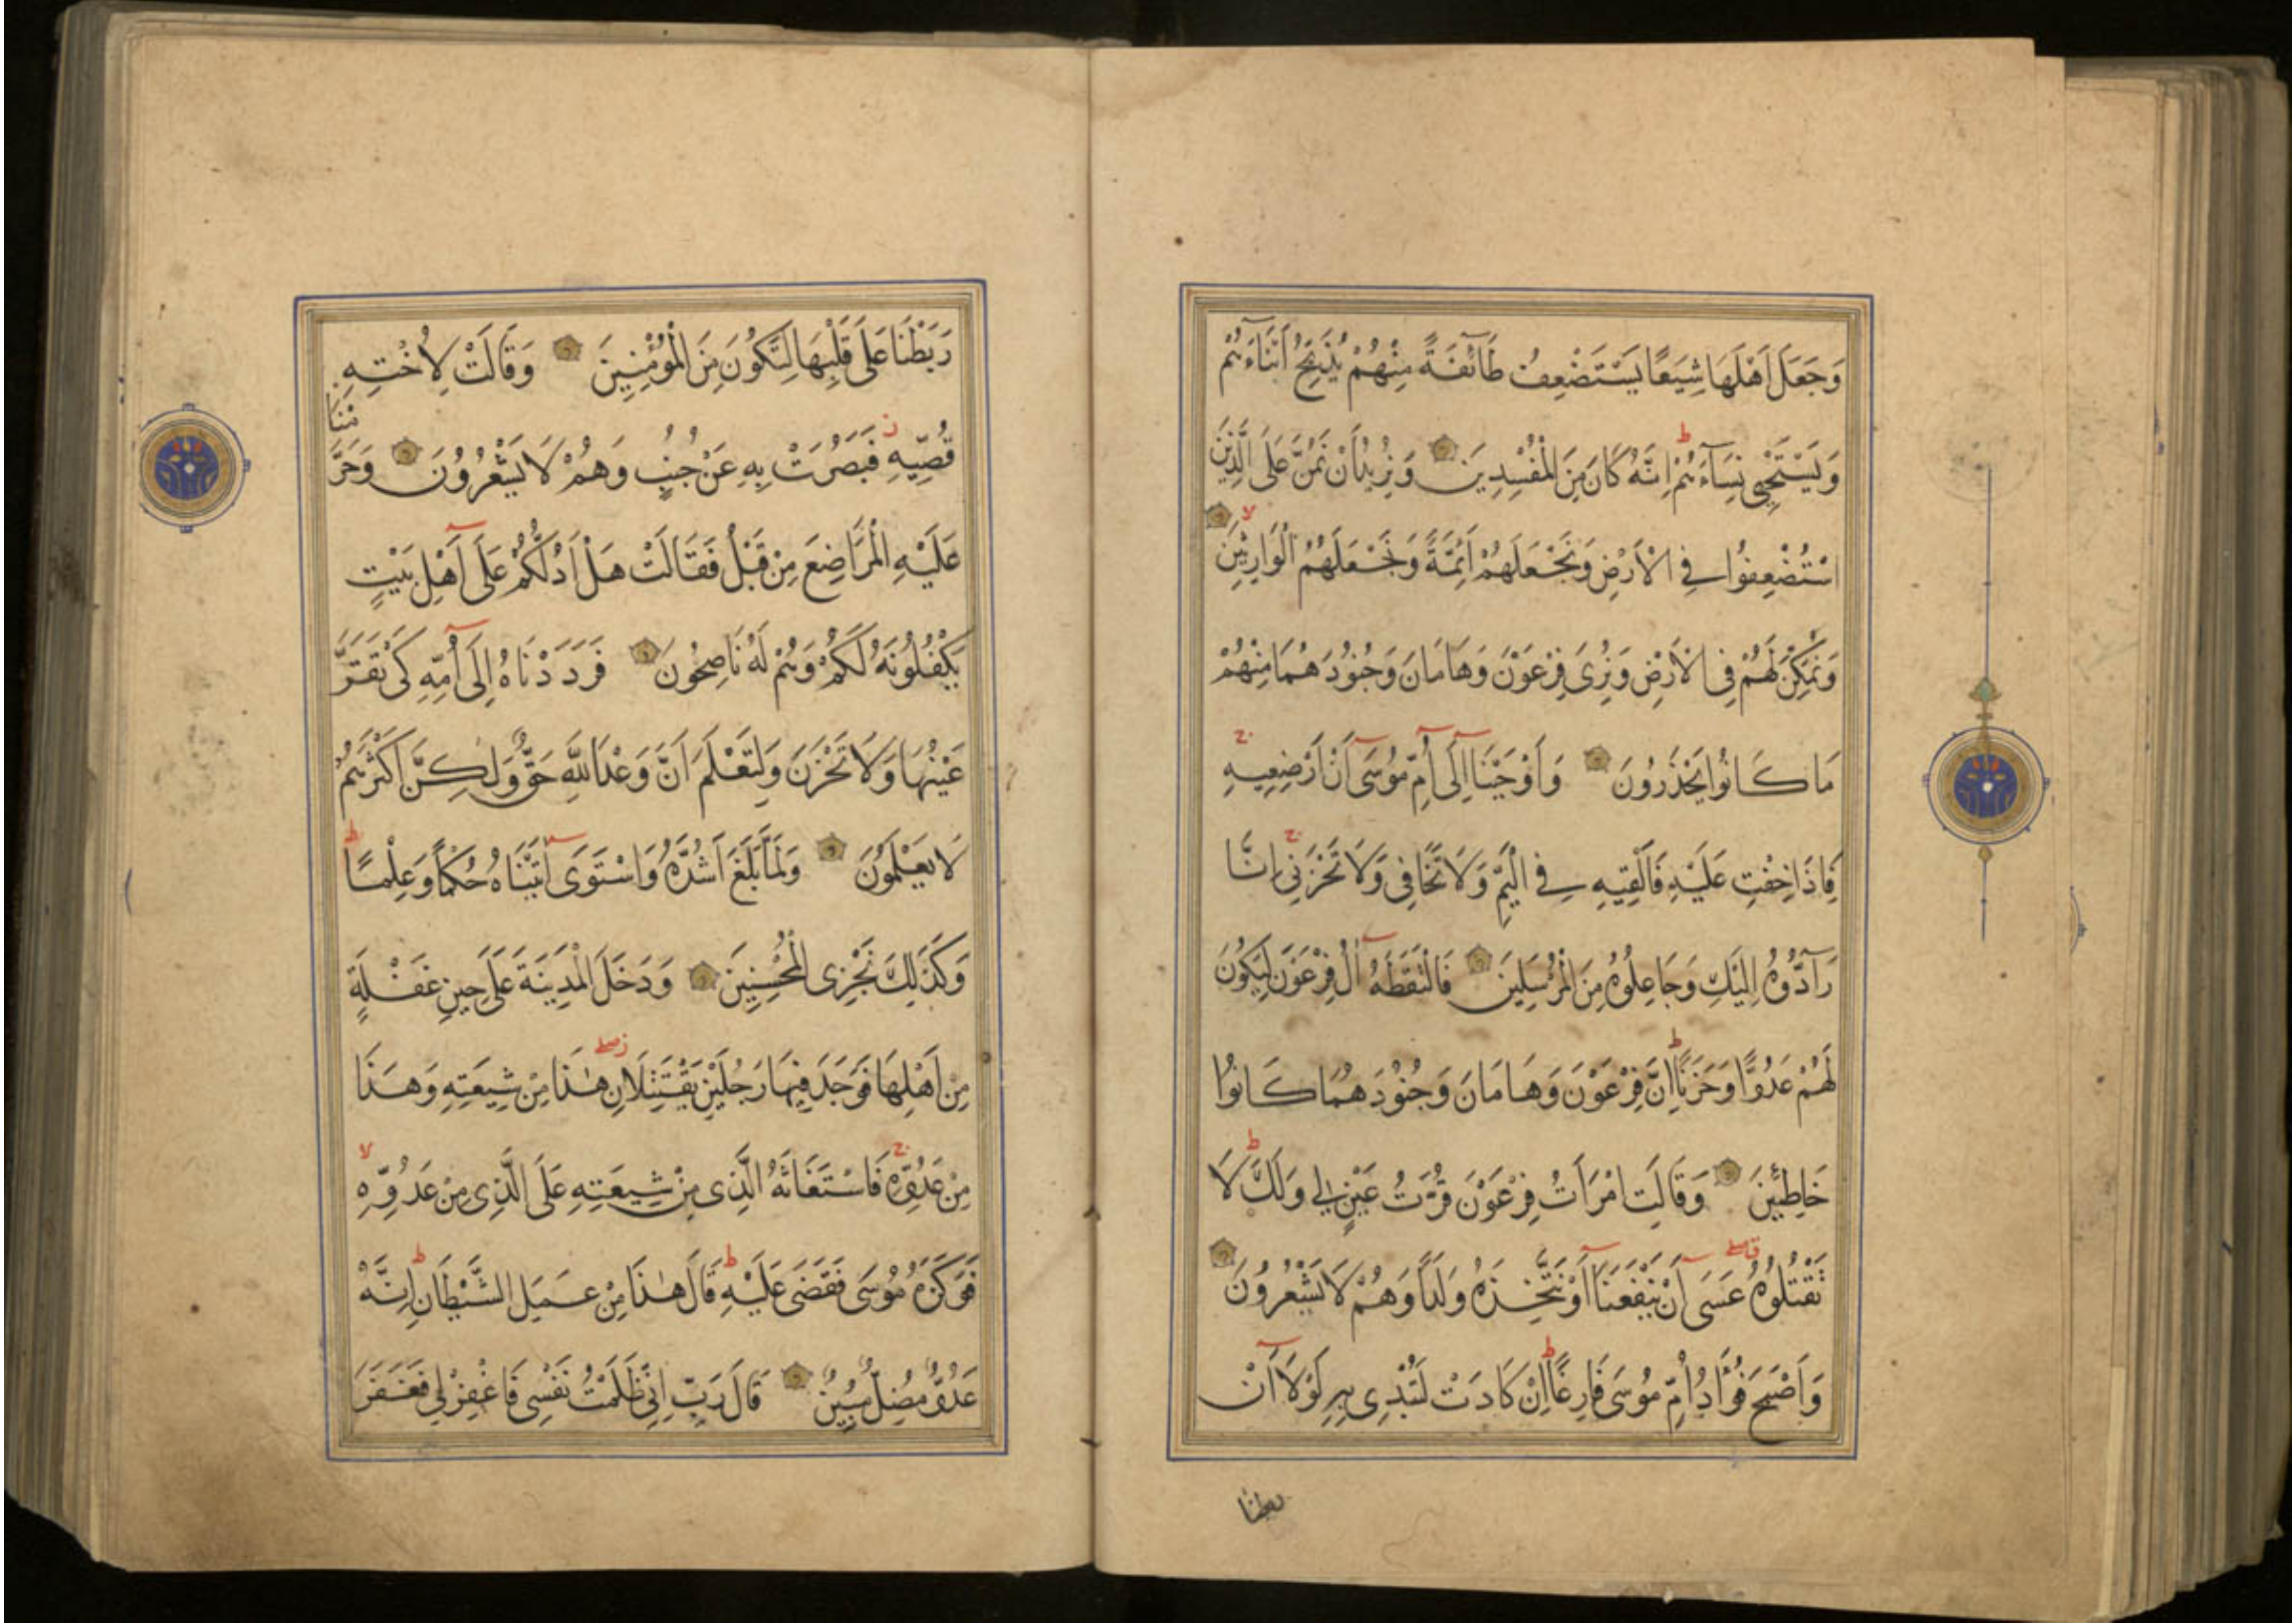 وَجَعَلَ اَهْلَهَا شِيَعًا يَسْتَضْعِفُ طَآئِفَةً مِنْهُمْ يُذَبِّحُ اَبْنَآءَهُمْ
وَيَسْتَحْيِي نِسَآءَهُمْ اِنَّهُ كَانَ مِنَ الْمُفْسِدِينَ وَنُرِيدُ اَنْ نَمُنَّ عَلَى الَّذِينَ
اسْتُضْعِفُوا فِي الْاَرْضِ وَنَجْعَلَهُمْ اَئِمَّةً وَنَجْعَلَهُمُ الْوَارِثِينَ
وَنُمَكِّنَ لَهُمْ فِي الْاَرْضِ وَنُرِىَ فِرْعَوْنَ وَهَامَانَ وَجُنُودَهُمَا مِنْهُمْ
مَا كَانُوا يَحْذَرُونَ وَاَوْحَيْنَا اِلَى اُمِّ مُوسَى اَنْ اَرْضِعِيهِ
فَاِذَا خِفْتِ عَلَيْهِ فَاَلْقِيهِ فِي الْيَمِّ وَلَا تَخَافِي وَلَا تَحْزَنِي اِنَّا
رَآدُّوهُ اِلَيْكِ وَجَاعِلُوهُ مِنَ الْمُرْسَلِينَ فَالْتَقَطَهُ اٰلُ فِرْعَوْنَ لِيَكُونَ
لَهُمْ عَدُوًّا وَحَزَنًا اِنَّ فِرْعَوْنَ وَهَامَانَ وَجُنُودَهُمَا كَانُوا
خَاطِئِينَ وَقَالَتِ امْرَاَتُ فِرْعَوْنَ قُرَّتُ عَيْنٍ لِي وَلَكَ لَا
تَقْتُلُوهُ عَسَى اَنْ يَنْفَعَنَا اَوْ نَتَّخِذَهُ وَلَدًا وَهُمْ لَا يَشْعُرُونَ
وَاَصْبَحَ فُؤَادُ اُمِّ مُوسَى فَارِغًا اِنْ كَادَتْ لَتُبْدِى بِهِ لَوْلَا اَنْ
بطنا
رَبَطْنَا عَلَى قَلْبِهَا لِتَكُونَ مِنَ الْمُؤْمِنِينَ وَقَالَتْ لِاُخْتِهِ
قُصِّيهِ فَبَصُرَتْ بِهِ عَنْ جُنُبٍ وَهُمْ لَا يَشْعُرُونَ وَحَرَّمْنَا
عَلَيْهِ الْمَرَاضِعَ مِنْ قَبْلُ فَقَالَتْ هَلْ اَدُلُّكُمْ عَلَى اَهْلِ بَيْتٍ
يَكْفُلُونَهُ لَكُمْ وَهُمْ لَهُ نَاصِحُونَ فَرَدَدْنَاهُ اِلَى اُمِّهِ كَىْ تَقَرَّ
عَيْنُهَا وَلَا تَحْزَنَ وَلِتَعْلَمَ اَنَّ وَعْدَ اللَّهِ حَقٌّ وَلٰكِنَّ اَكْثَرَهُمْ
لَا يَعْلَمُونَ وَلَمَّا بَلَغَ اَشُدَّهُ وَاسْتَوَى اٰتَيْنَاهُ حُكْمًا وَعِلْمًا
وَكَذٰلِكَ نَجْزِى الْمُحْسِنِينَ وَدَخَلَ الْمَدِينَةَ عَلَى حِينِ غَفْلَةٍ
مِنْ اَهْلِهَا فَوَجَدَ فِيهَا رَجُلَيْنِ يَقْتَتِلَانِ هٰذَا مِنْ شِيعَتِهِ وَهَذَا
مِنْ عَدُوِّهِ فَاسْتَغَاثَهُ الَّذِى مِنْ شِيعَتِهِ عَلَى الَّذِى مِنْ عَدُوِّهِ
فَوَكَزَهُ مُوسَى فَقَضَى عَلَيْهِ قَالَ هٰذَا مِنْ عَمَلِ الشَّيْطَانِ اِنَّهُ
عَدُوٌّ مُضِلٌّ مُبِينٌ قَالَ رَبِّ اِنِّي ظَلَمْتُ نَفْسِى فَاغْفِرْ لِي فَغَفَرَ